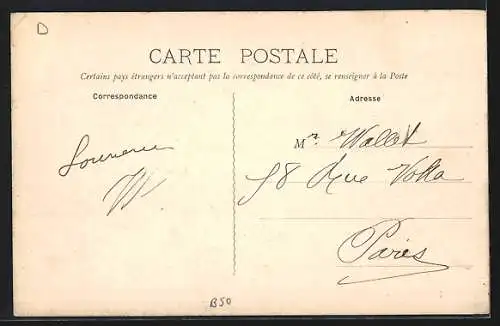 D
CARTE POSTALE
Certains pays étrangers n'acceptant pas la correspondance de ce côté, se renseigner à la Poste
Correspondance
Adresse
Souvenir
Mr. Wallet
58 Rue Volta
Paris
B50